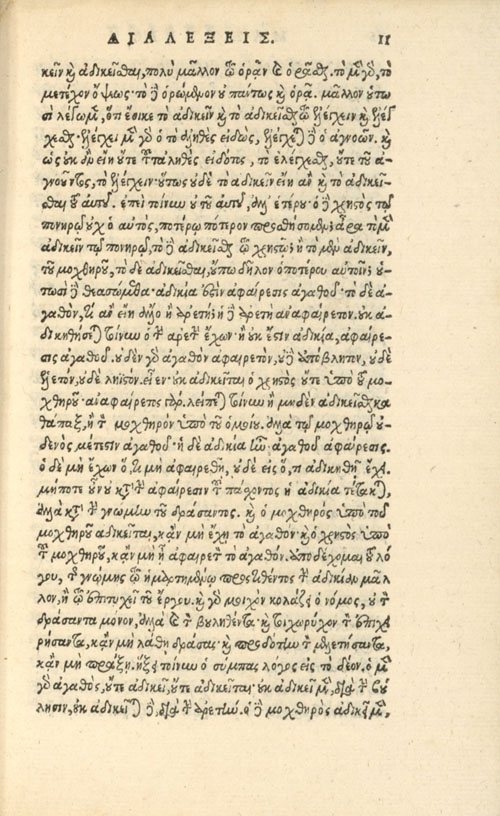 ΔΙΑΛΕΞΕΙΣ. 11
κεῖν καὶ ἀδικεῖσθαι, πολὺ μᾶλλον τοῦ ὁρᾶν καὶ ὁρᾶσθαι. τὸ μὲν γὰρ, τὸ
μετέχον ὄψεως· τὸ δὲ ὁρώμενον οὐ πάντως καὶ ὁρᾷ. μᾶλλον οὑτω
σὶ λέγωμεν, ὅτι ἔοικε τὸ ἀδικεῖν καὶ τὸ ἀδικεῖσθαι τῷ ἐξελέγχειν καὶ ἐξελέγ
χεσθαι· ἐξελέγχει μὲν γὰρ ὁ τὸ ἀληθὲς εἰδὼς, ἐξελέγχεται δὲ ὁ ἀγνοῶν. καὶ
ὡς οὐκ ἂν εἴη οὔτε τοῦ τἀληθὲς εἰδότος, τὸ ἐλέγχεσθαι, οὔτε τοῦ ἀ-
γνοοῦντος, τὸ ἐξελέγχειν· οὕτως οὐδὲ τὸ ἀδικεῖν εἴη ἂν καὶ τὸ ἀδικεῖ-
σθαι τοῦ αὐτοῦ. ἐπεὶ τοίνυν οὐ τοῦ αὐτοῦ, ἀλλ' ἑτέρου· ὁ δὲ χρηστὸς τῷ
πονηρῷ οὐχ ὁ αὐτὸς, ποτέρῳ πότερον προσθήσομεν; ἆρα τὸ μὲν
ἀδικεῖν τῷ πονηρῷ, τὸ δὲ ἀδικεῖσθαι τῷ χρηστῷ; ἢ τὸ μὲν ἀδικεῖν,
τοῦ μοχθηροῦ, τὸ δὲ ἀδικεῖσθαι, οὔπω δῆλον ὁποτέρου αὐτοῖν; οὑ-
τωσὶ δὲ θεασώμεθα· ἀδικία ἐστὶν ἀφαίρεσις ἀγαθοῦ· τὸ δὲ ἀ-
γαθὸν, τί ἂν εἴη ἄλλο ἢ ἀρετή; ἡ δὲ ἀρετὴ ἀναφαίρετον. οὐκ ἀ-
δικηθήσεται τοίνυν ὁ τὴν ἀρετὴν ἔχων· ἢ οὐκ ἔστιν ἀδικία, ἀφαίρε-
σις ἀγαθοῦ. οὐδὲν γὰρ ἀγαθὸν ἀφαιρετὸν, οὐδὲ ὑπόβλητον, οὐδὲ
ἑλετὸν, οὐδὲ ληϊστόν. εἶεν· οὐκ ἀδικεῖται ὁ χρηστὸς οὔτε ὑπὸ τοῦ μο-
χθηροῦ· ἀναφαίρετος γάρ. λείπεται τοίνυν ἢ μηδένα ἀδικεῖσθαι κα
θάπαξ, ἢ τὸν μοχθηρὸν ὑπὸ τοῦ ὁμοίου. ἀλλὰ τῷ μοχθηρῷ οὐ-
δενὸς μέτεστιν ἀγαθοῦ· ἡ δὲ ἀδικία ἦν ἀγαθοῦ ἀφαίρεσις.
ὁ δὲ μὴ ἔχων ὅ, τι μὴ ἀφαιρεθῇ, οὐδὲ εἰς ὅ, τι ἀδικηθῇ ἔχει.
μήποτε οὖν οὐ κατὰ τὴν ἀφαίρεσιν τοῦ πάσχοντος ἡ ἀδικία τέτακται,
ἀλλὰ κατὰ τὴν γνώμην τοῦ δράσαντος. καὶ ὁ μοχθηρὸς ὑπὸ τοῦ
μοχθηροῦ ἀδικεῖται, κἂν μὴ ἔχῃ τὸ ἀγαθόν· καὶ ὁ χρηστὸς ὑπὸ
τοῦ μοχθηροῦ, κἂν μὴ ἀφαιρετὸν τὸ ἀγαθόν. ἀποδέχομαι τοῦ λό
γου, τῇ γνώμης τῷ ἡμαρτημένῳ προστιθέντος τὴν ἀδικίαν μᾶλ
λον, ἢ τῷ ἐπιτυχεῖ τοῦ ἔργου. καὶ γὰρ μοιχὸν κολάζει ὁ νόμος, οὐ τὸν
δράσαντα μόνον, ἀλλὰ καὶ τὸν βουληθέντα· καὶ τοιχωρύχον τὸν ἐπιχει
ρήσαντα, κἂν μὴ λάθῃ δράσας· καὶ προδότην τὸν μελλήσαντα,
κἂν μὴ πράξῃ. ἥξει τοίνυν ὁ σύμπας λόγος εἰς τὸ δέον. ὁ μὲν
γὰρ ἀγαθὸς, οὔτε ἀδικεῖ, οὔτε ἀδικεῖται· οὐκ ἀδικεῖ μὲν, διὰ τὴν βού
λησιν, οὐκ ἀδικεῖται δὲ, διὰ τὴν ἀρετήν. ὁ δὲ μοχθηρὸς ἀδικεῖ μὲν,